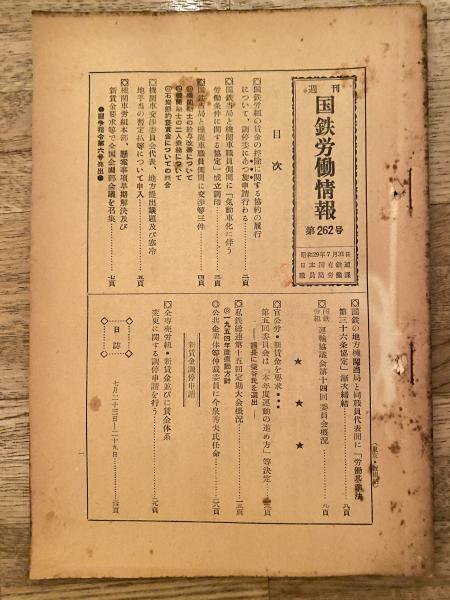 週刊
国鉄労働情報
第262号
昭和29年7月31日
日本国有鉄道
職員局労働課
目次
◎国鉄労組の賃金の控除に関する協約の履行
について、調停委にあつ旋申請行わる……二頁
◎国鉄当局と機関車職員側間に「気動車化に伴う
労働条件に関する協定」成立調印……三頁
◎国鉄当局と機関車職員側間に交渉等三件……四頁
◎機関士の給与改善について
◎機関助士の二人乗務について
◎石炭節約奨賞金についての照会
◎機関車交渉委員会代表、地方提出議題及び寒冷
地手当の暫定払等について申入……五頁
◎機関車労組本部、懸案事項早期解決及び
新賃金要求等で全国企画部会議を召集……七頁
●闘争指令第六号発出●
◎国鉄の地方機関当局と同職員代表間に「労働基準法
第三十六条協定」漸次締結……八頁
◎国鉄労組 運輸協議会第十四回委員会概況……九頁
★ ★ ★
◎官公労・新賃金を要求
第五回委員会は「本年度運動の進め方」等決定
◎私鉄総連第十五回定期大会概況
◎一九五四年度運動方針
◎公共企業体等仲裁委員に今泉秀夫氏任命……二六頁
新賃金調停申請
◎全専売労組・新賃金並びに賃金体系
変更に関する調停申請を行う
日誌
七月二十三日―二十九日